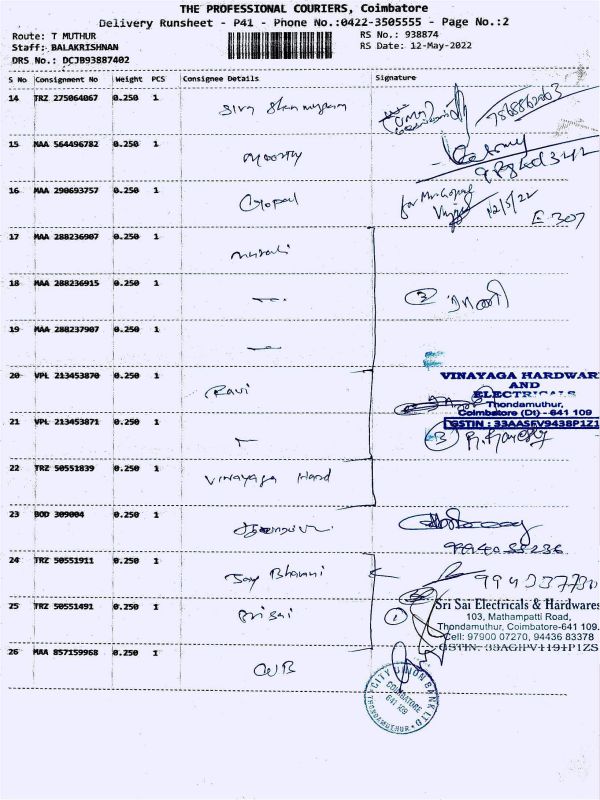 THE PROFESSIONAL COURIERS, Coimbatore
Delivery Runsheet - P41 - Phone No.:0422-3505555 - Page No.:2
Route: T MUTHUR RS No.: 938874
Staff: BALAKRISHNAN RS Date: 12-May-2022
DRS No.: DCJB93887402
S No Consignment No Weight PCS Consignee Details Signature
14 TRZ 275064067 0.250 1 Siva
15 MAA 564496782 0.250 1 Moorthy
16 MAA 290693757 0.250 1 Gopal for Mr. Gopal 12/5/22 E 307
17 MAA 288236907 0.250 1 Murali
18 MAA 288236915 0.250 1 — 3
19 MAA 288237907 0.250 1 —
20 VPL 213453870 0.250 1 Ravi
VINAYAGA HARDWAR
AND
ELECTRICALS
Thondamuthur,
Coimbatore (Dt) - 641 109
GSTIN : 33AASFV9438P1Z1
21 VPL 213453871 0.250 1 3
22 TRZ 50551839 0.250 1 Vinayaga Hard
23 BOD 309004 0.250 1
24 TRZ 50551911 0.250 1 Jay Bhavani
25 TRZ 50551491 0.250 1 Sri Sai 1
Sri Sai Electricals & Hardwares
103, Mathampatti Road,
Thondamuthur, Coimbatore-641 109.
Cell: 97900 07270, 94436 83378
GSTIN: 33AGHPV1191P1ZS
26 MAA 857159968 0.250 1 CUB
CITY UNION BANK LTD
COIMBATORE
641 109
THONDAMUTHUR